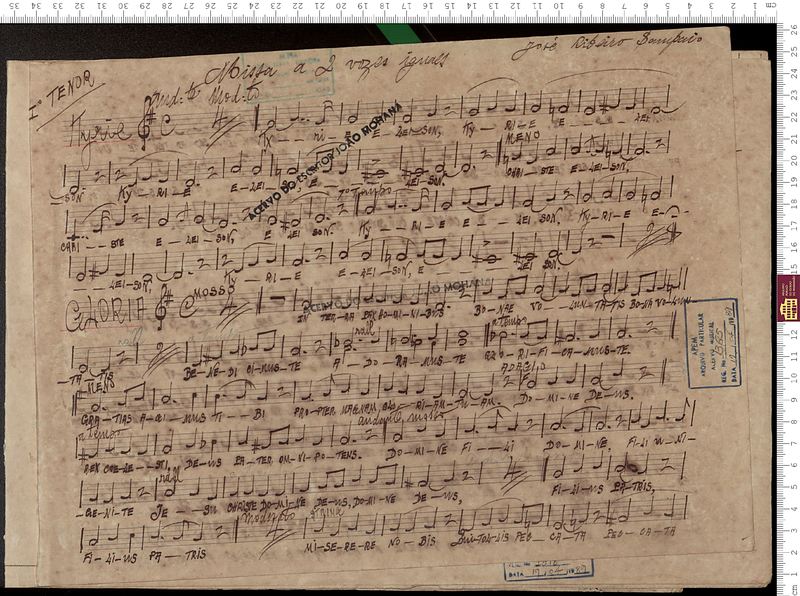 Iº TENOR
Missa a 2 vozes iguais
José Ribeiro Sampaio
Kyrie And.te Mod.to
KY - - RI - E E - LEI - SON, KY - - RI - E E - - LEI -
MENO
- SON. KY - RI - E E - LEI - SON, E - - LEI - SON. CHRI - STE E - LEI - SON,
ACERVO DO ESCRITOR JOÃO MOHANA
1º Tempo
CHRI - - STE E - LEI - SON, E LEI SON. KY - - RI - E E - - LEI SON, KY - RI - E E -
- LEI - SON, KY - RI - E E - LEI - SON, E LEI SON.
GLORIA MOSSO
ET IN TER - RA PAX HO - MI - NI - BUS BO - NAE VO - LUN - TA - TIS BO - NAE VO - LUN -
rall a tempo
- TA - TIS BE - NE - DI - CI - MUS - TE A - DO - RA - MUS TE GLO - RI - FI - CA - MUS - TE.
MENO ADAGIO
GRA - TIAS A - GI - MUS TI - BI PRO - PTER MAGNAM GLO - RI - AM - TU - AM. DO - MI - NE DE - US.
a tempo andante mosso
REX COE - LE - STI DE - US PA - TER OM - NI - PO - TENS. DO - MI - NE FI - - LI DO - MI - NE FI - LI U - NI -
rall
- GE - NI - TE JE - SU CHRISTE DO - MI - NE DE - US, DO - MI - NE DE - US, FI - LI - US PA - TRIS,
moderato
FI - LI - US PA - TRIS MI - SE - RE - RE NO - BIS QUI TOL - LIS PEC - CA - TA PEC - CA - TA
APEM
ARQUIVO PARTICULAR
ACERVO MUSICAL
REG. Nº
DATA